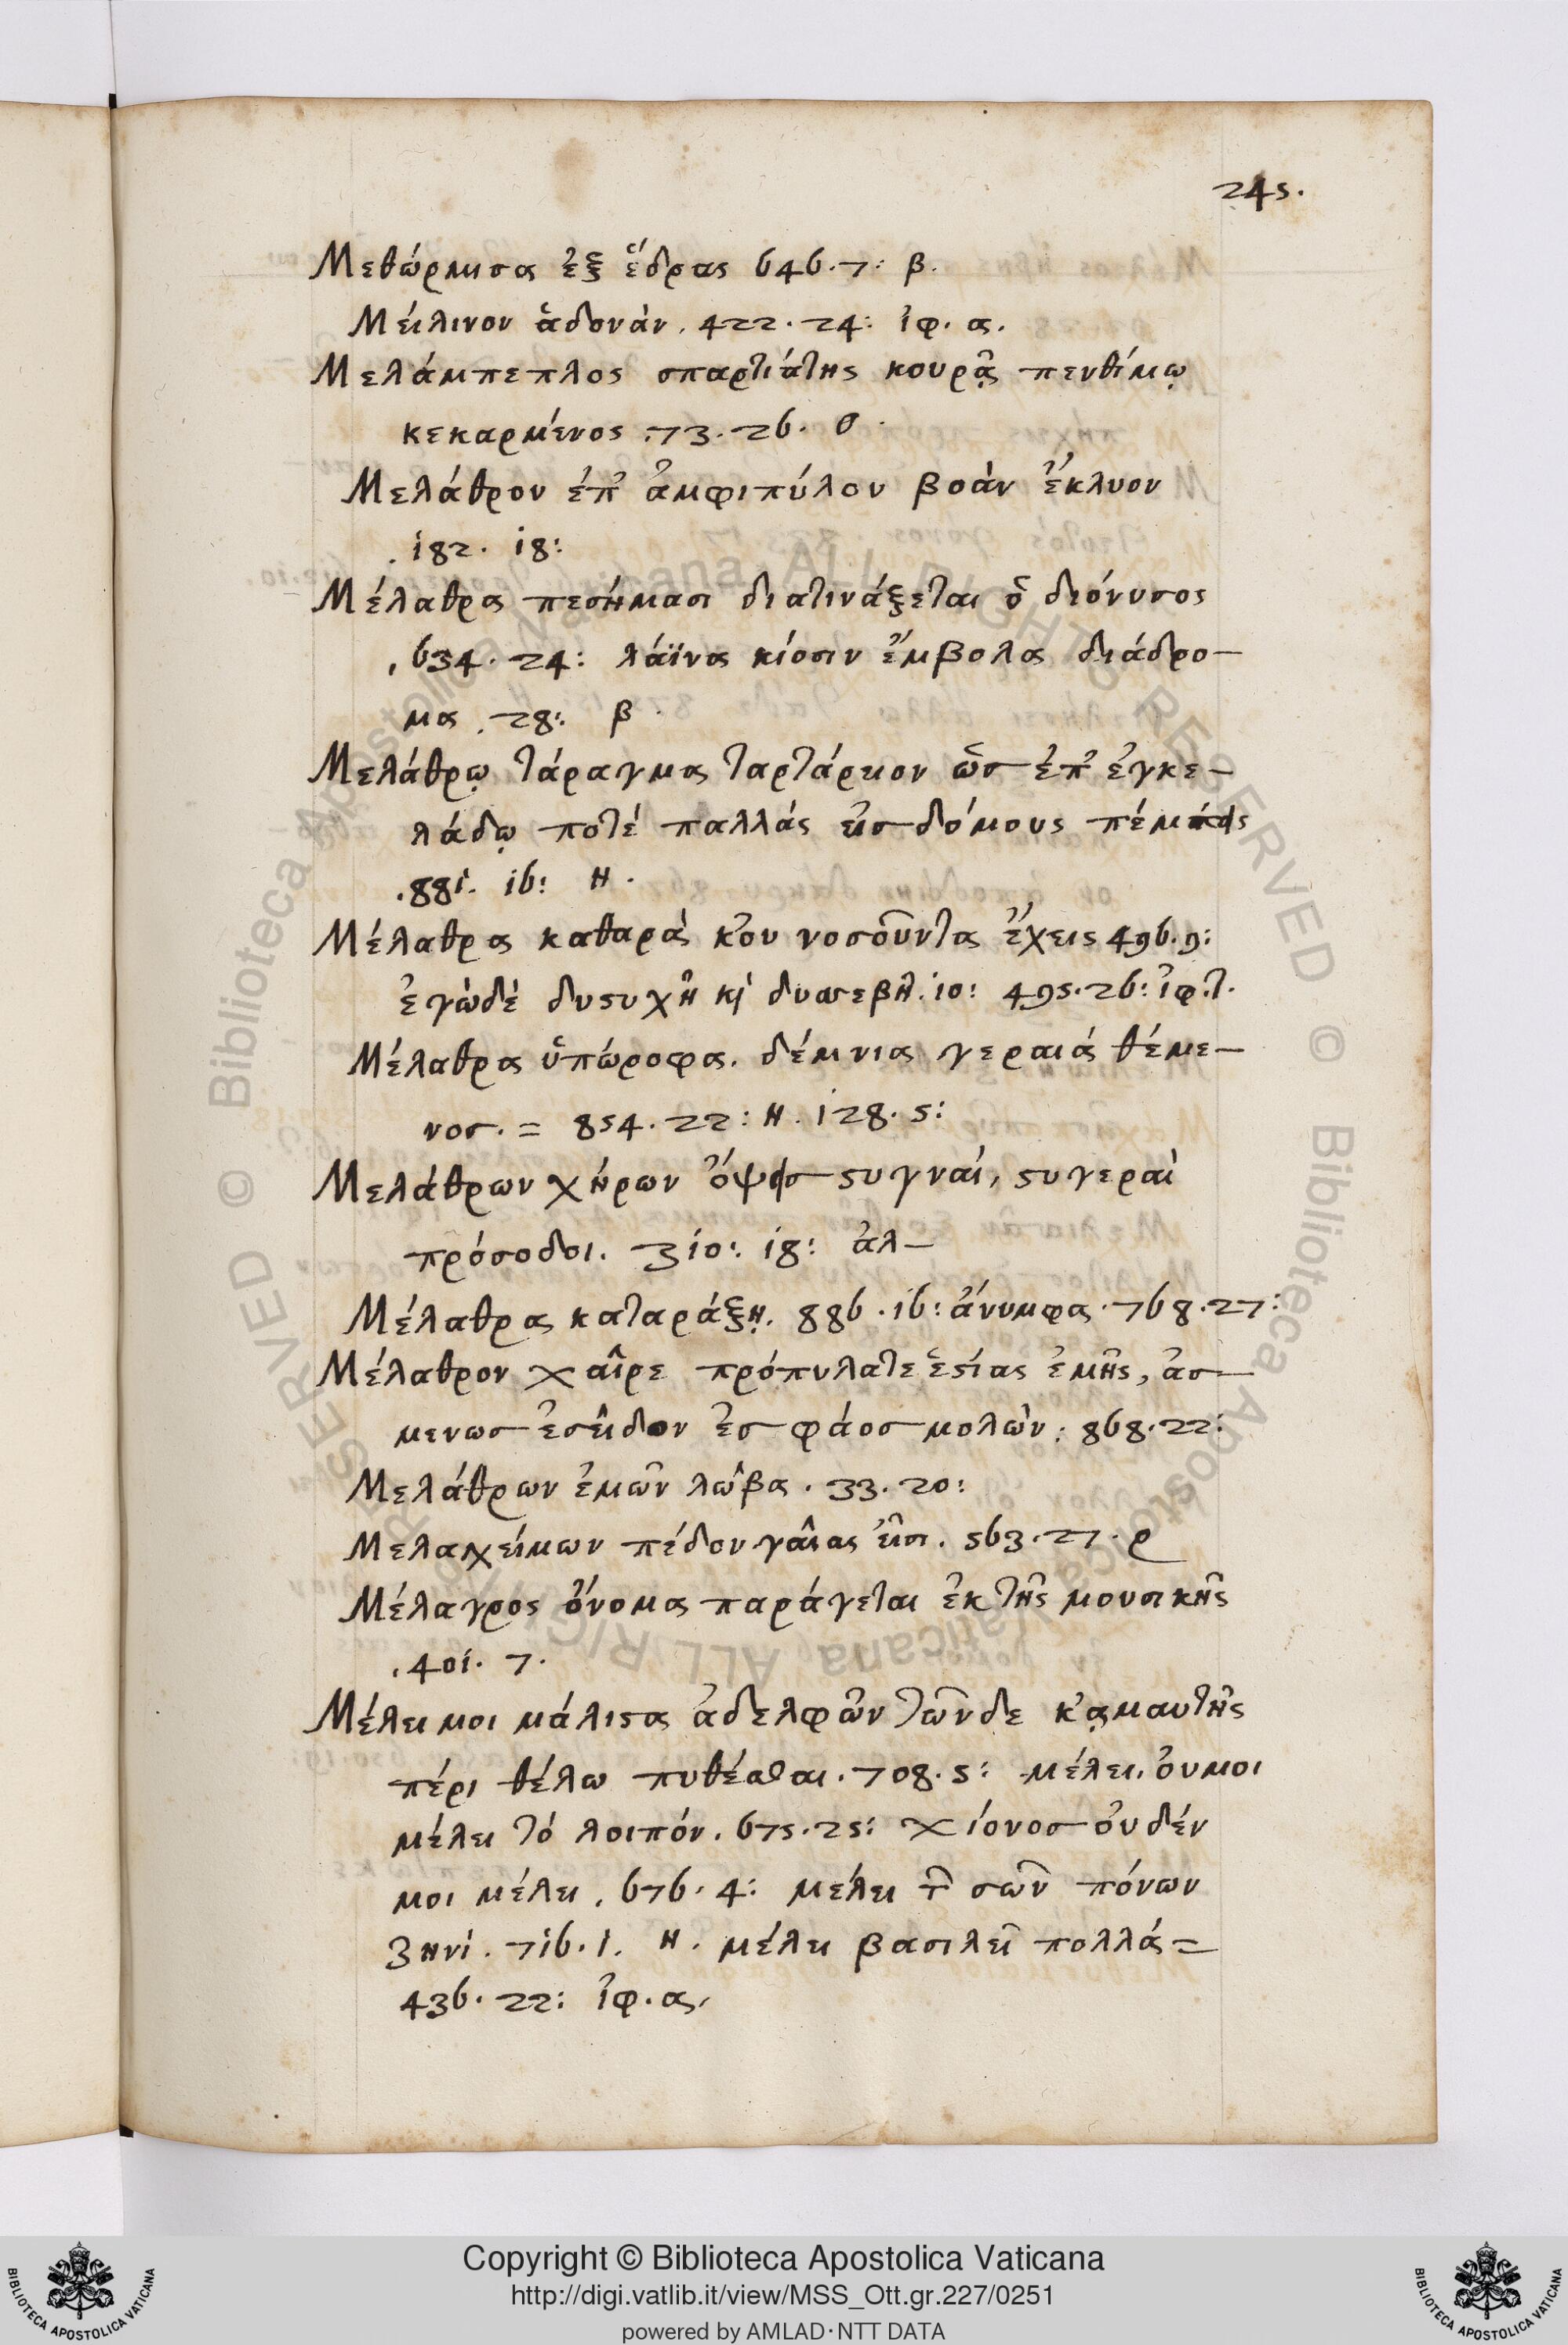 245.
Μεθώρμισα ἐξ ἕδρας 646.7: β.
Μείλινον ἁδονὰν. 422.24: ἰφ. α.
Μελάμπεπλος σπαρτιάτης κουρᾷ πενθίμῳ
κεκαρμένος .73.26. ο
Μελάθρον ἐπ' ἀμφιπύλου βοὰν ἔκλυον
.182. 18:
Μέλαθρα πεσήμασι διατινάξεται ὁ διόνυσος
,634.24: λάϊνα κίοσιν ἔμβολα διάδρο-
μα. 28: β.
Μελάθρῳ τάραγμα ταρτάρειον ὡς ἐπ' ἐγκε-
λάδῳ ποτέ παλλάς εἰς δόμους πέμπεις
.881. 16: Η.
Μέλαθρα καθαρὰ κ'ου νοσοῦντα ἔχεις 496.9:
ἐγὼδὲ δυςυχῆ κὶ δυσσεβῆ. 10: 495.26: ἰφ.τ.
Μέλαθρα ὑπώροφα. δέμνια γεραιά θέμε-
νος. = 854.22: Η. 128.5:
Μελάθρων χήρων ὄψεις ςυγναί, ςυγεραὶ
πρόσοδοι. 310: 18: ἀλ-
Μέλαθρα καταράξῃ. 886.16: ἄνυμφα. 768.27:
Μέλαθρον χαῖρε πρόπυλατε ἑςίας ἐμῆς, ἀσ-
μενως ἐσεῖδον ἐς φάος μολὼν: 868.22:
Μελάθρων ἐμῶν λώβα. 33.20:
Μελαγχείμων πέδον γαίας εἰσι. 563.27. ρ
Μέλαγρος ὄνομα παράγεται ἐκ τῆς μουσικῆς
.401. 7.
Μέλει μοι μάλιςα ἀδελφῶν τῶνδε κ'ᾳμαυτῆς
πέρι θέλω πυθέσθαι. 708.5: μέλει, οὐμοι
μέλει τό λοιπόν. 675.25: χίονος οὐδέν
μοι μέλει, 676.4: μέλει τῶν σῶν πόνων
Ζηνὶ. 716.1. Η. μέλει βασιλεῖ πολλά =
436.22: ἰφ. α.
Copyright © Biblioteca Apostolica Vaticana
http://digi.vatlib.it/view/MSS_Ott.gr.227/0251
powered by AMLAD·NTT DATA